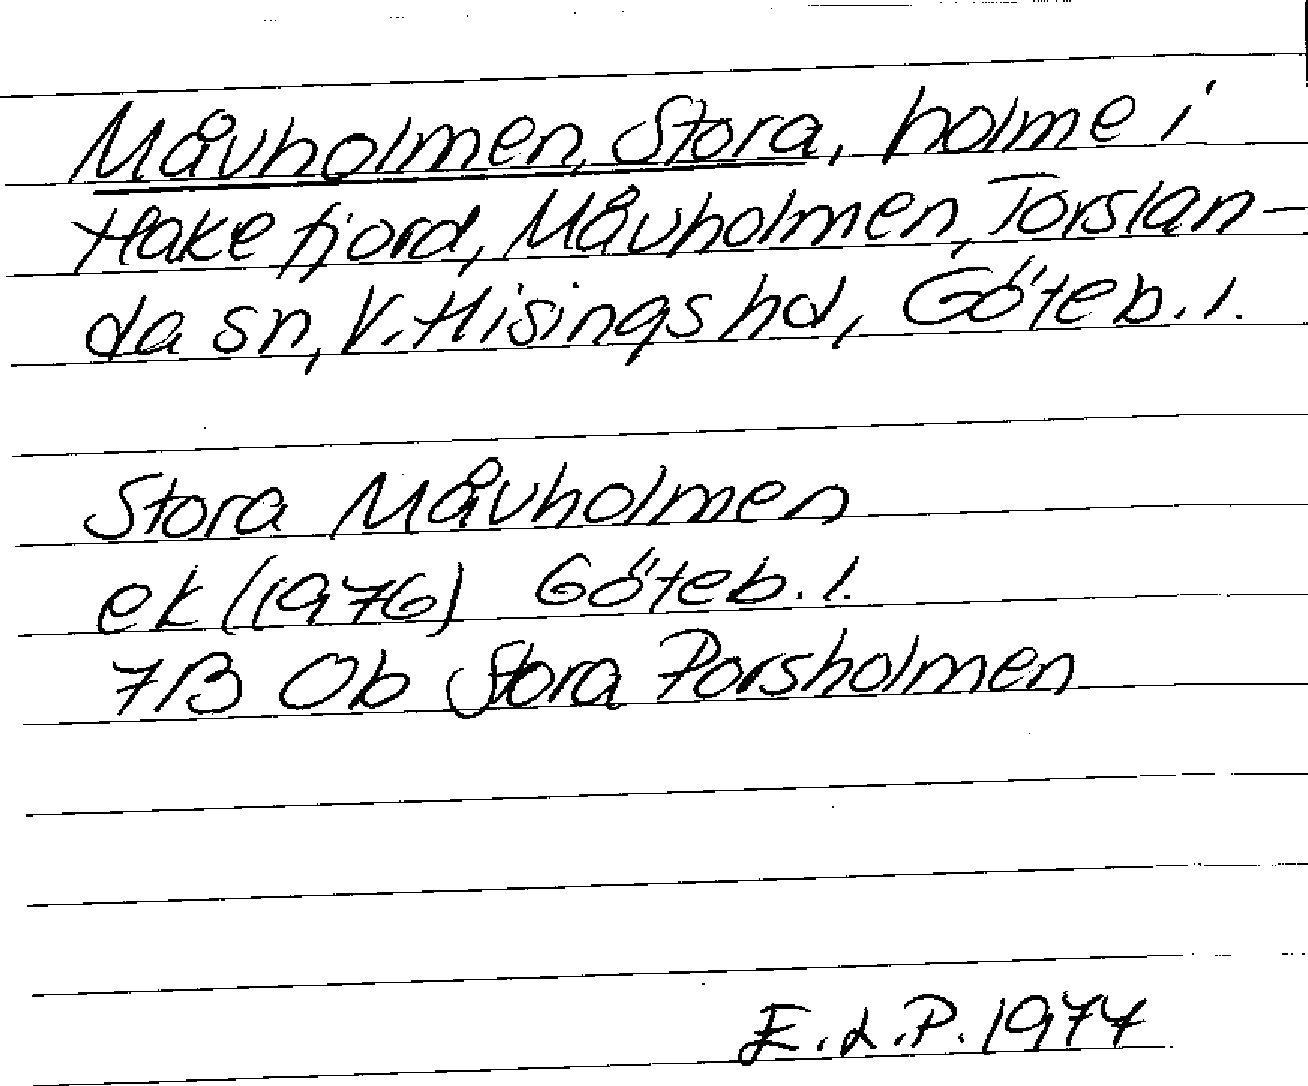 Måvholmen, Stora, holme i
Hake fjord, Måvholmen, Torslan-
da sn, V. Hisings hd, Göteb. l.
Stora Måvholmen
ek (1976) Göteb. l.
7B 0b Stora Porsholmen
E.L.P. 1977